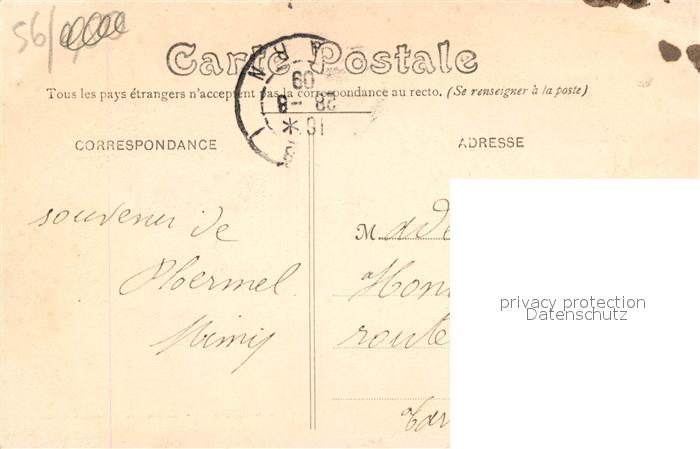 56/
Carte Postale
Tous les pays étrangers n'acceptent pas la correspondance au recto. (Se renseigner à la poste)
CORRESPONDANCE
ADRESSE
souvenir de
Ploermel
Mimy
M
route
privacy protection
Datenschutz
09
28 -8
10 *